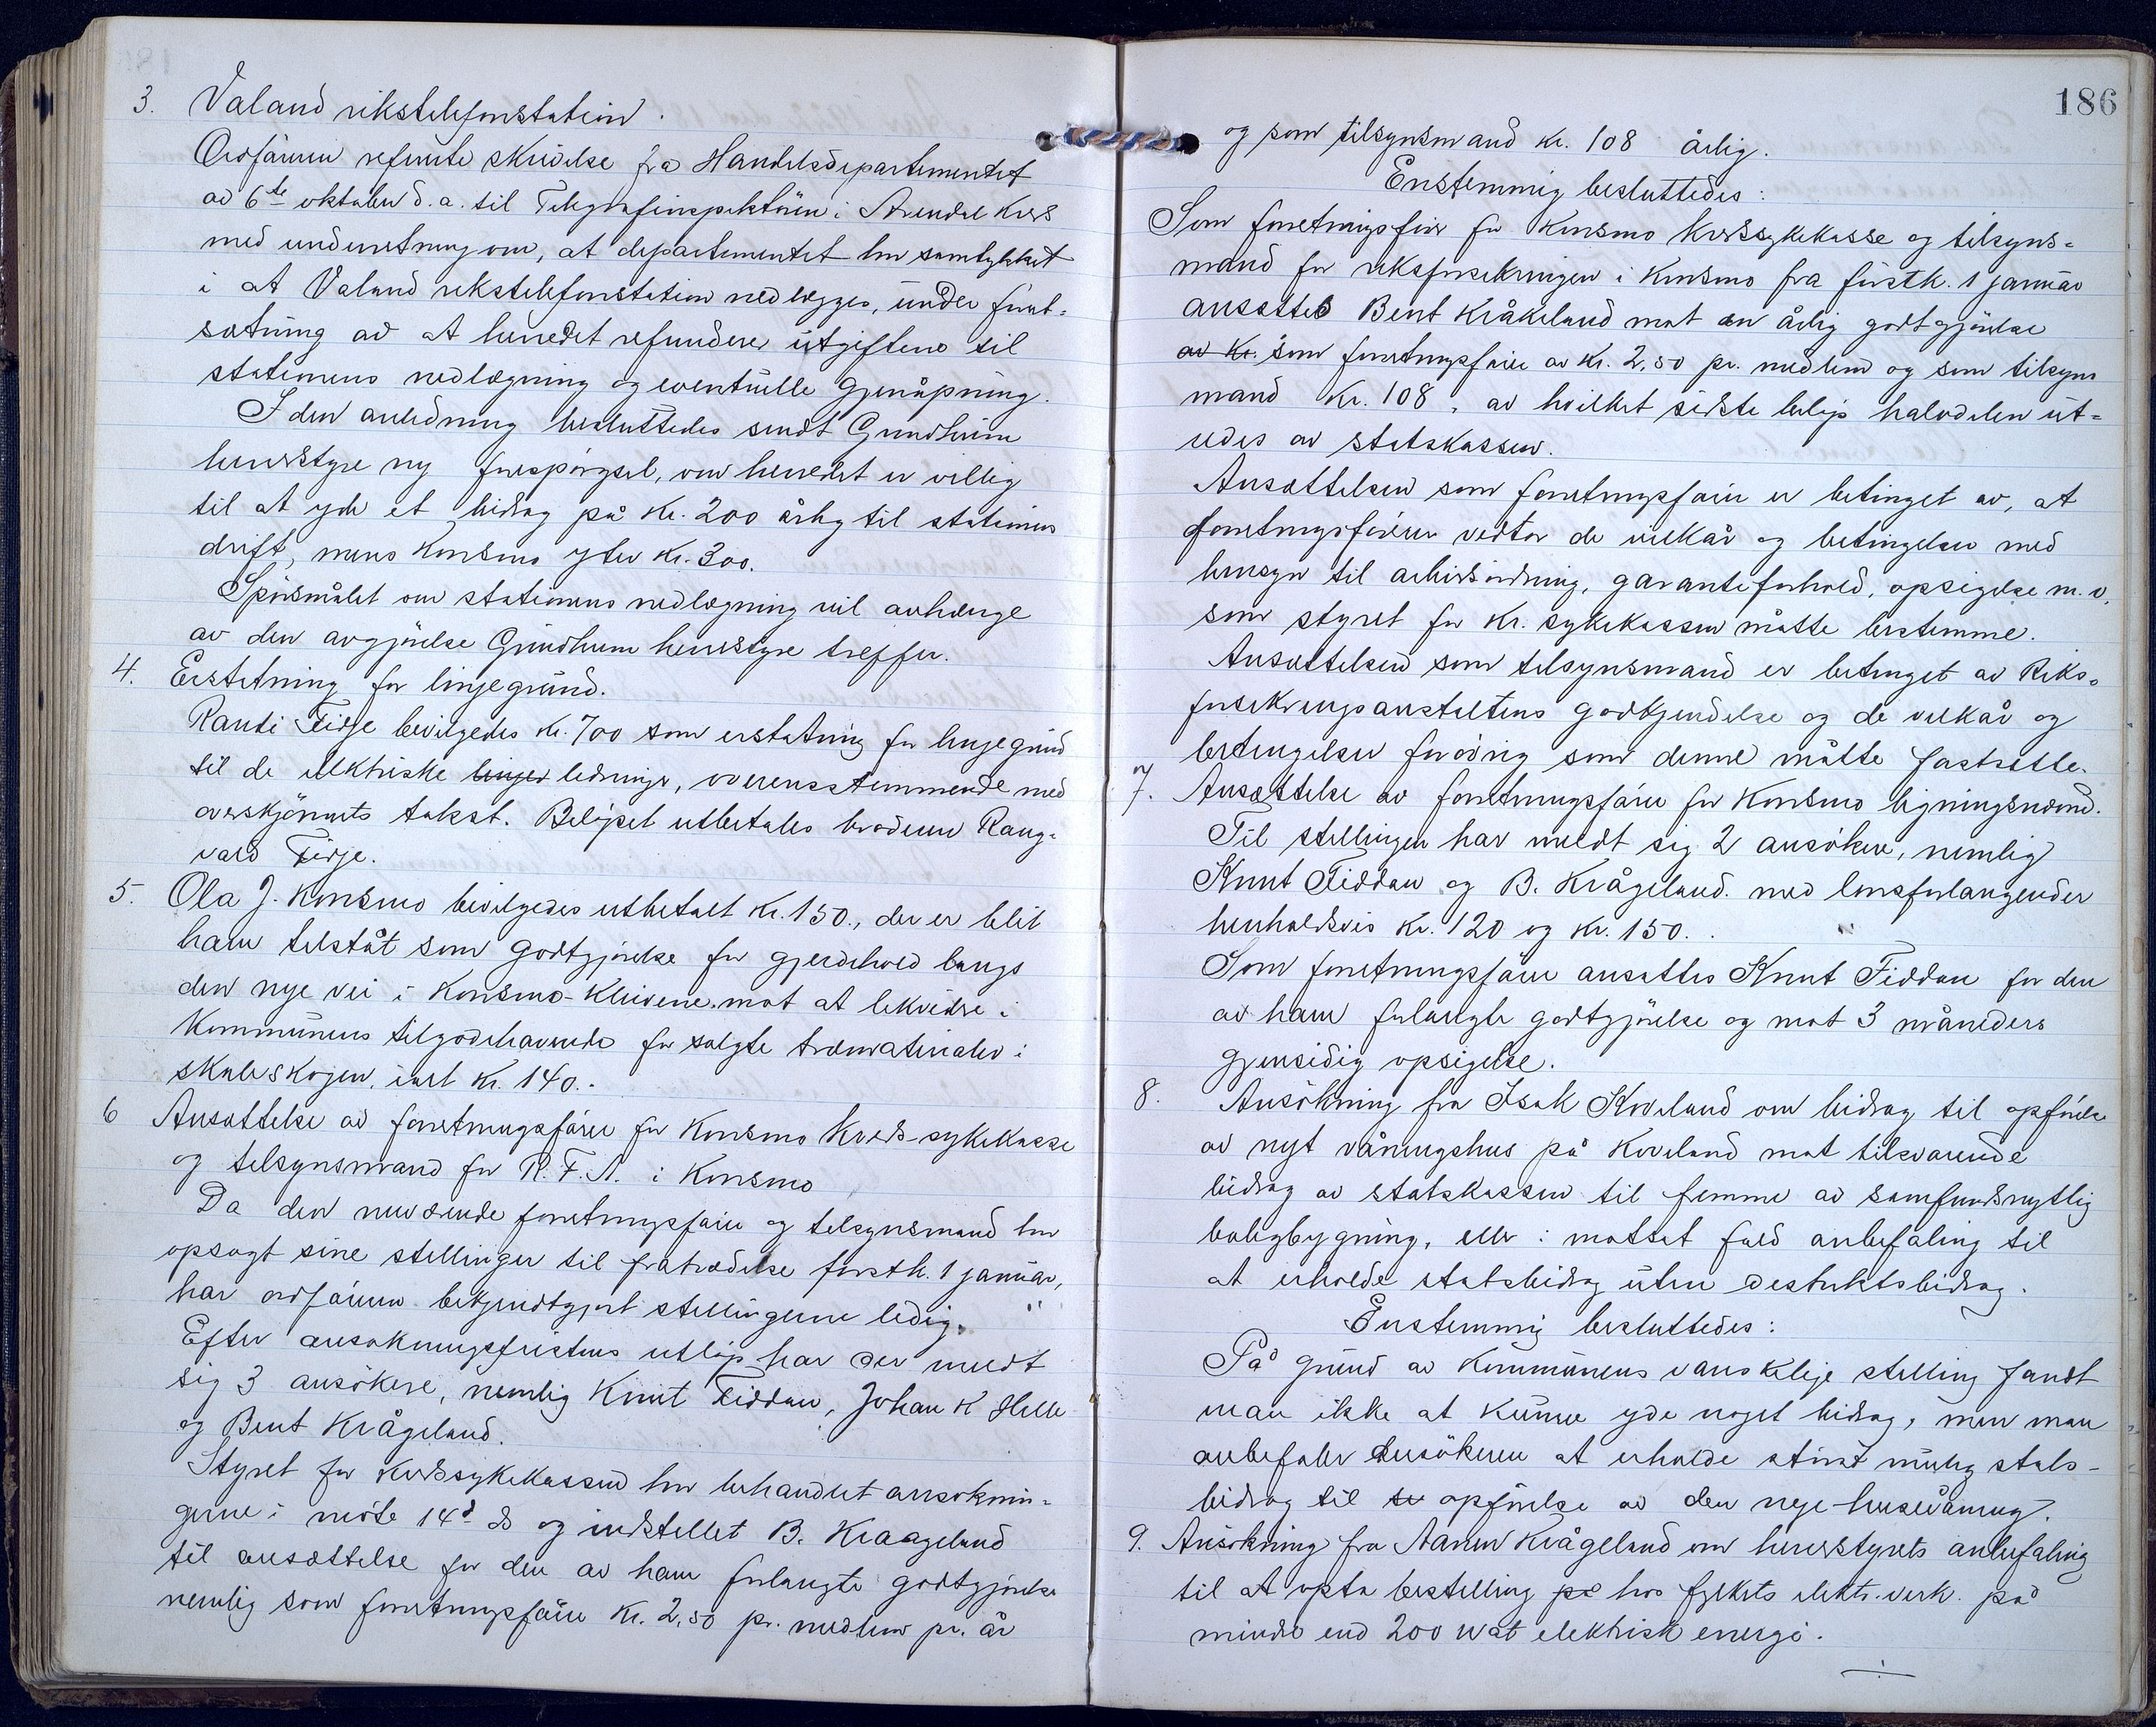 3. Valand rikstelefonstation.
Ordføreren refererte skrivelse fra Handelsdepartementet
av 6te oktober d.a. til Telegrafinspektøren i Arendal Kres
med underretning om, at departementet har samtykket
i at Valand rikstelefonstation nedlægges, under forut-
sætning av at herredet refunderer utgiftene til
stationens nedlægning og eventuelle gjenåpning.
I den anledning besluttedes sendt Grindheim
herredstyre ny forespørgsel, om herredet er villig
til at yde et bidrag på kr. 200 årlig til stationens
drift, mens Konsmo yter kr. 300.
Spørsmålet om stationens nedlægning vil avhænge
av den avgjørelse Grindheim herredstyre treffer.
4. Erstatning for linjegrund.
Randi Fidje bevilgedes kr. 700 som erstatning for linjegrund
til de elektriske linjer ledninger, overensstemmende med
overskjønnets takst. Beløpet utbetales broderen Rang-
vald Fidje.
5. Ola J. Konsmo bevilgedes utbetalt kr. 150., der er blit
ham tilståt som godtgjørelse for gjerdehold langs
den nye vei i Konsmo-Kleivene, mot at likvidere i
Kommunens tilgodehavende for solgte træmaterialer i
skuleskogen, ialt kr. 140.-
6 Ansættelse av forretningsfører for Konsmo Kreds-sykekasse
og tilsynsmand for R.F.A. i Konsmo
Da den nuværende forretningsfører og tilsynsmand har
opsagt sine stillinger til fratrædelse førstk. 1 januar,
har ordføreren bekjendtgjort stillingerne ledig.
Efter ansøkningsfristens utløp har der meldt
sig 3 ansøkere, nemlig Knut Fiddan, Johan K Helle
og Bent Krågeland.
Styret for Kredssykekassen har behandlet ansøknin-
gerne i møte 14d ds og indstillet B. Kraageland
til ansættelse for den av ham forlangte godtgjørelse
nemlig som forretningsfører kr. 2,50 pr. medlem pr. år
186
og som tilsynsmand kr. 108 årlig.
Enstemmig besluttedes:
Som forretningsfører for Konsmo Kredssykekasse og tilsyns-
mand for riksforsikringen i Konsmo fra førstk. 1 januar
ansættes Bent Kråkeland mot en årlig godtgjørelse
av kr. som forretningsfører av kr. 2,50 pr. medlem og som tilsyns
mand kr. 108, av hvilket sidste beløp halvdelen ut-
redes av statskassen.
Ansættelsen som forretningsfører er betinget av, at
forretningsføreren vedtar de vilkår og betingelser med
hensyn til arbeidsordning, garantiforhold, opsigelse m.v.
som styret for Kr. sykekassen måtte bestemme.
Ansættelsen som tilsynsmand er betinget av Riks-
forsikringsanstaltens godkjendelse og de vilkår og
betingelser forøvrig som denne måtte fastsette.
7. Ansættelse av forretningsfører for Konsmo ligningsnævnd.
Til stillingen har meldt sig 2 ansøkere, nemlig
Knut Fiddan og B. Krågeland. med lønsforlangender
henholdsvis kr. 120 og kr. 150.
Som forretningsfører ansættes Knut Fiddan for den
av ham forlangte godtgjørelse og mot 3 måneders
gjensidig opsigelse.
8. Ansøkning fra Isak Koveland om bidrag til opførelse
av nyt våningshus på Koveland mot tilsvarende
bidrag av statskassen til fremme av samfundsnyttig
boligbygning, eller i motsat fald anbefaling til
at erholde statsbidrag uten distriktsbidrag.
Enstemmig besluttedes:
På grund av kommunens vanskelige stilling fandt
man ikke at kunne yde noget bidrag, men man
anbefaler Ansøkeren at erholde størst mulig stats-
bidrag til se opførelse av den nye husevåning.
9. Ansøkning fra Aanen Krågeland om herredstyrets anbefaling
til at opta bestilling på hos fylkets elektr. verk. på
mindre end 200 wat elektrisk energi.